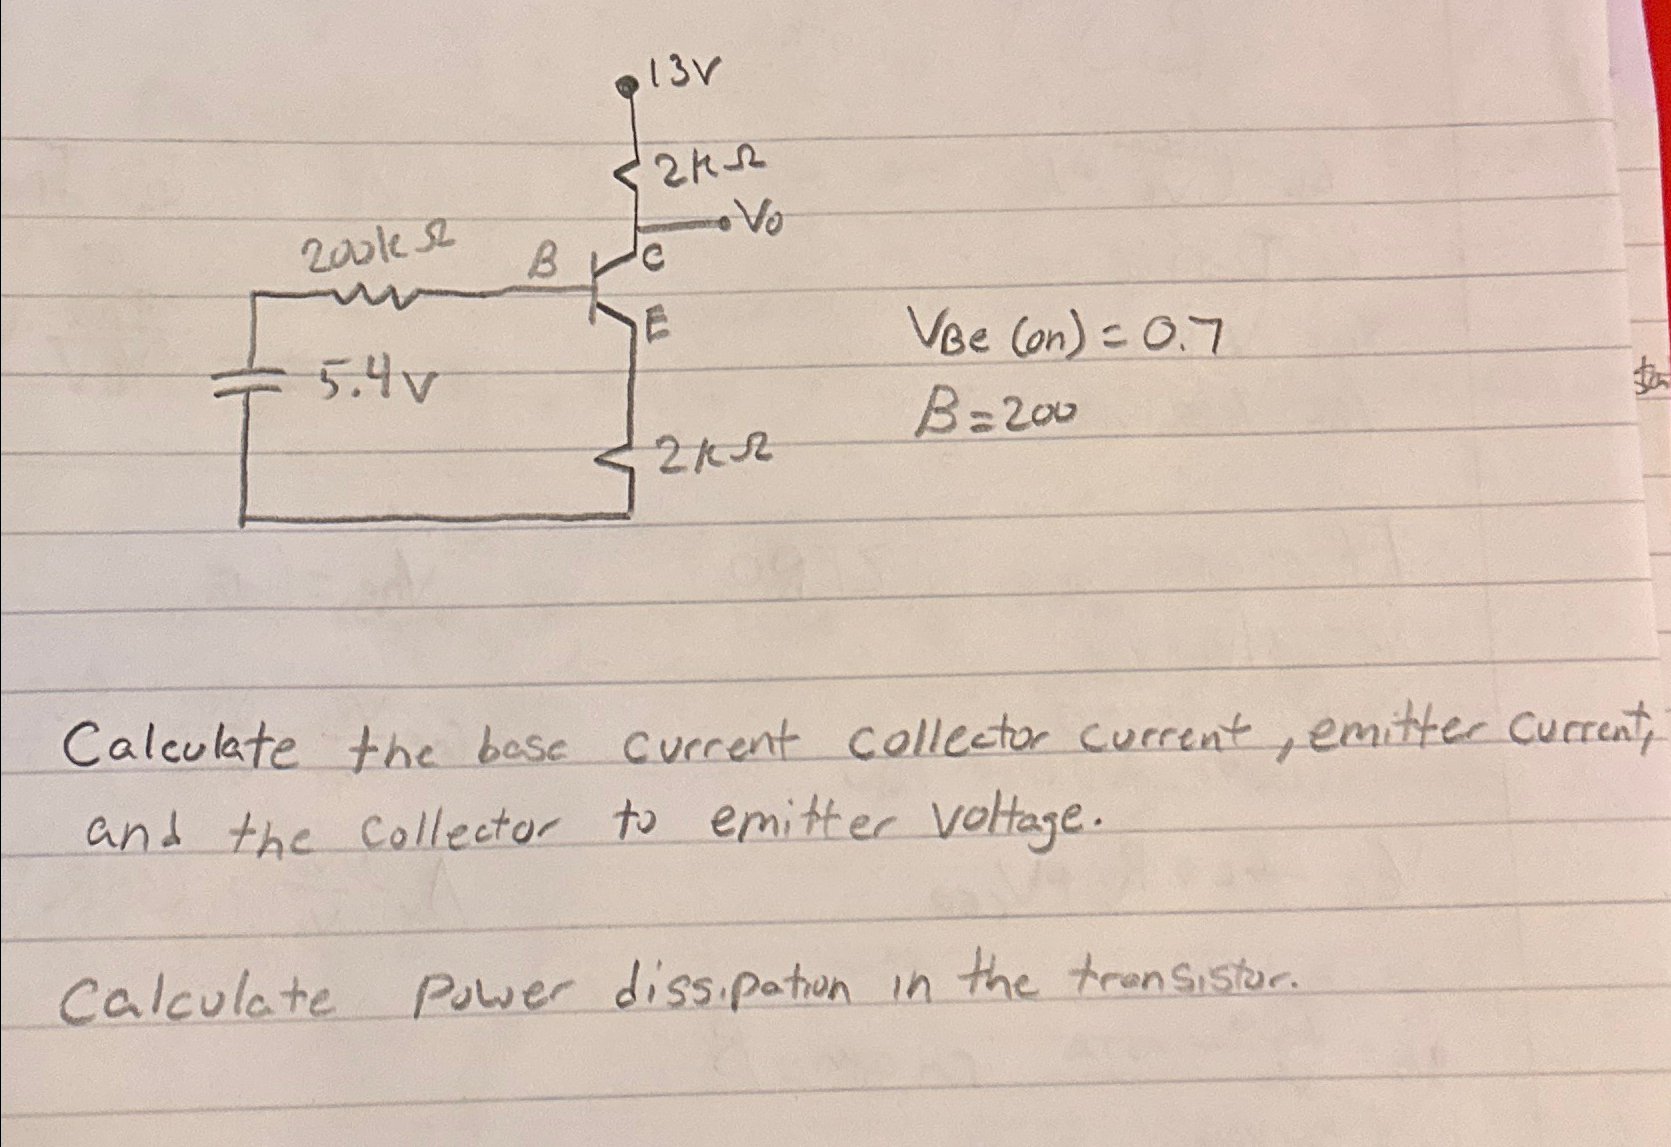 13V
2kΩ
Vo
200kΩ
B
C
E
VBe (on) = 0.7
5.4V
B=200
2kΩ
Calculate the base current collector current, emitter current,
and the collector to emitter voltage.
Calculate power dissipation in the transistor.